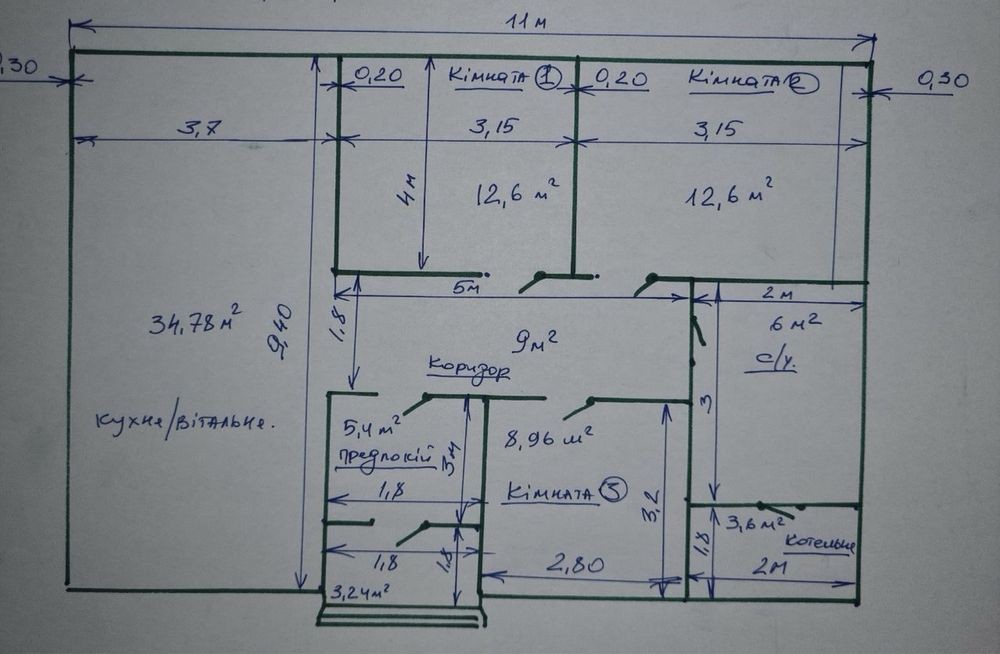 11 м
,30
0,20
Кімната 1
0,20
Кімната 2
0,30
3,7
3,15
3,15
4м
12,6 м²
12,6 м²
5м
2 м
34,78 м²
9,40
1,8
9 м²
6 м²
с/у.
Коридор
Кухне/вітальне.
5,4 м²
Предпокій
3м
8,96 м²
3
1,8
Кімната 3
3,2
3,6 м²
Котельне
1,8
1,8
1,8
2,80
2м
3,24 м²